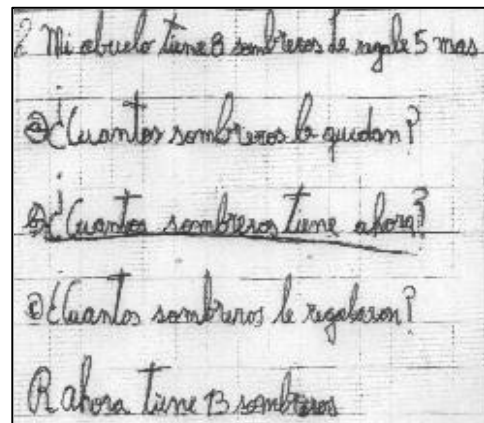 2 Mi abuelo tiene 8 sombreros le regale 5 mas
a) ¿Cuantos sombreros le quedan?
b) ¿Cuantos sombreros tiene ahora?
c) ¿Cuantos sombreros le regalaron?
R ahora tiene 13 sombreros